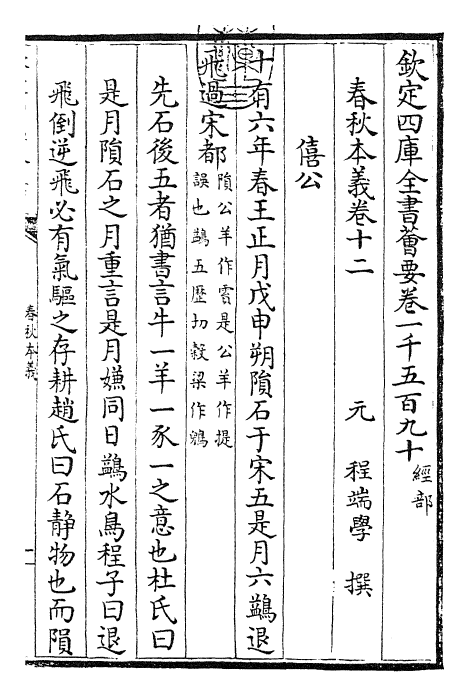 欽定四庫全書薈要卷一千五百九十 經部
春秋本義卷十二
元 程端學 撰
僖公
十有六年春王正月戊申朔隕石于宋五是月六鷁退
飛過宋都 隕公羊作霣是公羊作提
誤也鷁五歷切穀梁作鶂
先石後五者猶書言牛一羊一豕一之意也杜氏曰
是月隕石之月重言是月嫌同日鷁水鳥程子曰退
飛倒逆飛必有氣驅之存耕趙氏曰石静物也而隕
春秋本義
一